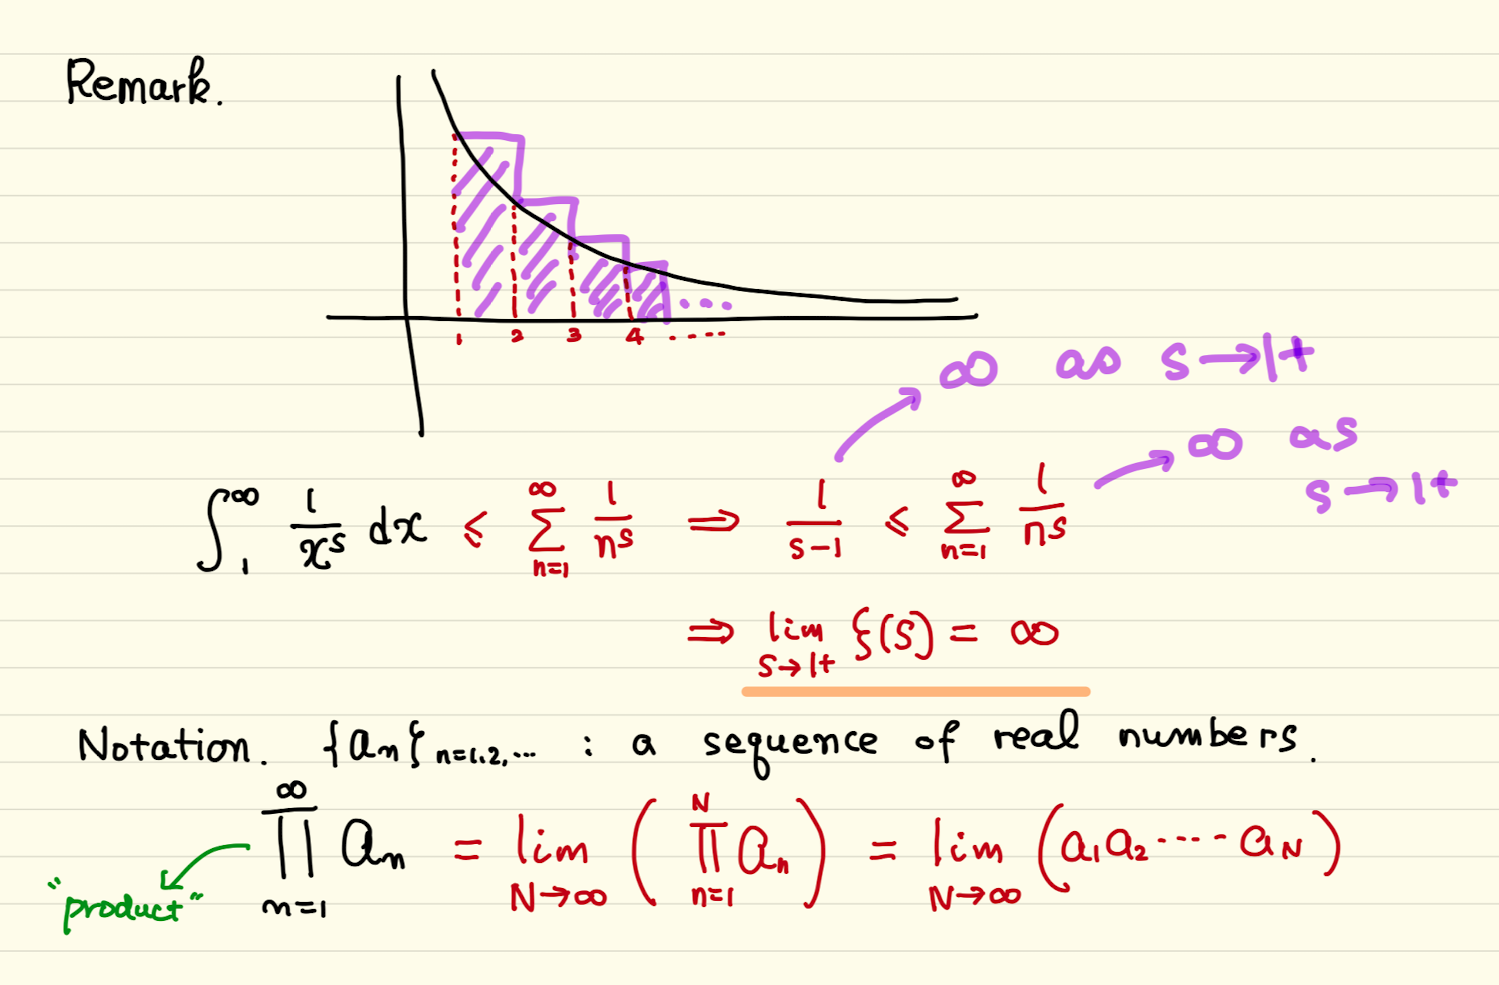 Remark.
1 2 3 4 ......
∞ as s→1+
∞ as
s→1+
∫₁^∞ 1/x^s dx ≤ ∑_{n=1}^∞ 1/n^s ⇒ 1/(s-1) ≤ ∑_{n=1}^∞ 1/n^s
⇒ lim_{s→1+} ξ(s) = ∞
Notation. {an}n=1,2,... : a sequence of real numbers.
∏_{n=1}^∞ an = lim_{N→∞} ( ∏_{n=1}^N an ) = lim_{N→∞} (a1a2 ···· aN)
"product"